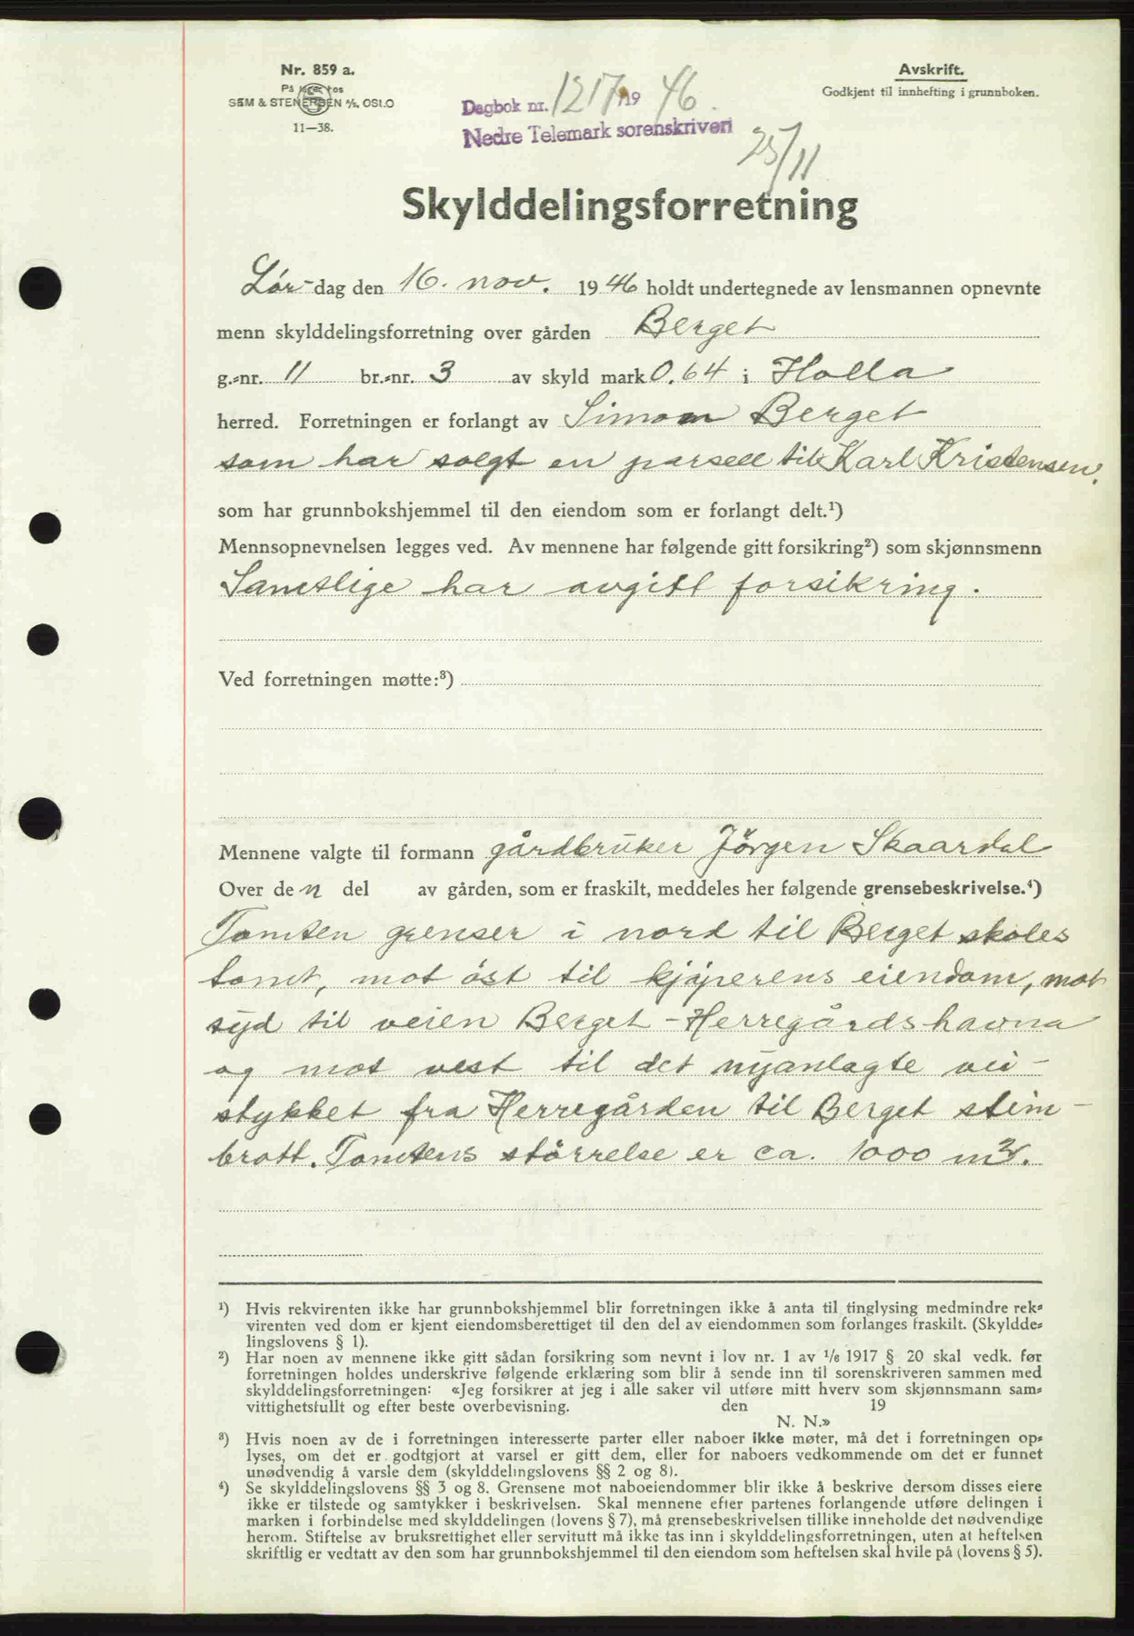 Nr. 859 a.
På lager hos
SEM & STENERSEN A/S, OSLO
11—38.
Dagbok nr. 1217/19 46.
Nedre Telemark sorenskriveri
25/11
Avskrift.
Godkjent til innhefting i grunnboken.
Skylddelingsforretning
Lør-dag den 16. nov. 1946 holdt undertegnede av lensmannen opnevnte
menn skylddelingsforretning over gården Berget
g.-nr. 11 br.-nr. 3 av skyld mark 0.64 i Holla
herred. Forretningen er forlangt av Simon Berget
som har solgt en parsell til Karl Kristensen.
som har grunnbokshjemmel til den eiendom som er forlangt delt.¹)
Mennsopnevnelsen legges ved. Av mennene har følgende gitt forsikring²) som skjønnsmenn
Samtlige har avgitt forsikring.
Ved forretningen møtte:³)
Mennene valgte til formann gårdbruker Jörgen Skaardal
Over den del av gården, som er fraskilt, meddeles her følgende grensebeskrivelse.⁴)
Tomten grenser i nord til Berget skoles
tomt, mot öst til kjöperens eiendom, mot
syd til veien Berget-Herregårdshavna
og mot vest til det nyanlagte vei-
stykket fra Herregården til Berget stein-
brott. Tomtens störrelse er ca. 1000 m².
¹) Hvis rekvirenten ikke har grunnbokshjemmel blir forretningen ikke å anta til tinglysing medmindre rek-
virenten ved dom er kjent eiendomsberettiget til den del av eiendommen som forlanges fraskilt. (Skyldde-
lingslovens § 1).
²) Har noen av mennene ikke gitt sådan forsikring som nevnt i lov nr. 1 av 1/6 1917 § 20 skal vedk. før
forretningen holdes underskrive følgende erklæring som blir å sende inn til sorenskriveren sammen med
skylddelingsforretningen: «Jeg forsikrer at jeg i alle saker vil utføre mitt hverv som skjønnsmann sam-
vittighetsfullt og efter beste overbevisning. den 19
N. N.»
³) Hvis noen av de i forretningen interesserte parter eller naboer ikke møter, må det i forretningen op-
lyses, om det er godtgjort at varsel er gitt dem, eller for naboers vedkommende om det er funnet
unødvendig å varsle dem (skylddelingslovens §§ 2 og 8).
⁴) Se skylddelingslovens §§ 3 og 8. Grensene mot naboeiendommer blir ikke å beskrive dersom disses eiere
ikke er tilstede og samtykker i beskrivelsen. Skal mennene efter partenes forlangende utføre delingen i
marken i forbindelse med skylddelingen (lovens § 7), må grensebeskrivelsen tillike inneholde det nødvendige
herom. Stiftelse av bruksrettighet eller servitutt må ikke tas inn i skylddelingsforretningen, uten at heftelsen
skriftlig er vedtatt av den som har grunnbokshjemmel til den eiendom som heftelsen skal hvile på (lovens § 5).